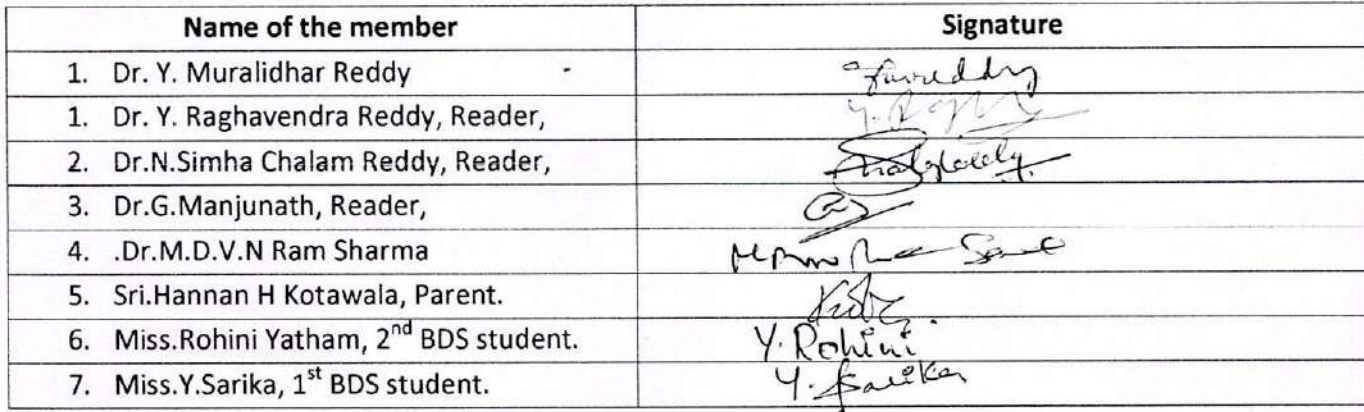 Name of the member Signature
1. Dr. Y. Muralidhar Reddy
1. Dr. Y. Raghavendra Reddy, Reader,
2. Dr.N.Simha Chalam Reddy, Reader,
3. Dr.G.Manjunath, Reader,
4. .Dr.M.D.V.N Ram Sharma
5. Sri.Hannan H Kotawala, Parent.
6. Miss.Rohini Yatham, 2nd BDS student. Y. Rohini
7. Miss.Y.Sarika, 1st BDS student. Y. Sarika